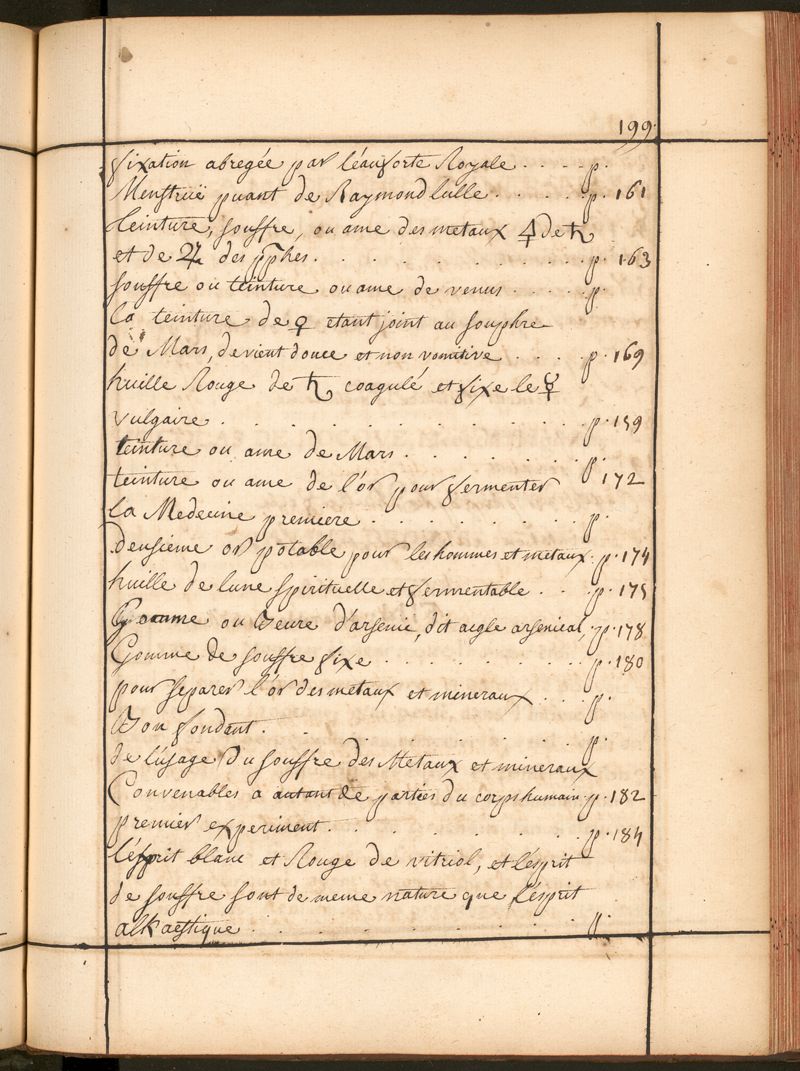 199.
fixation abregée par l'éau forte Royale . . . . . p.
Menstruë puant de Raymond lulle . . . . . . p. 161
teinture, souffre, ou ame des metaux 🜍 de ♄
et de ♃ des pphes. . . . . . . . . . . . p. 163
souffre ou teinture ou ame de venus . . . . . p.
la teinture de ♀ etant joint au souphre
de Mars, devient douce et non vomitive . . . . p. 169
huille Rouge de ♄ coagulé et fixe le ☿
vulgaire . . . . . . . . . . . . p. 159
teinture ou ame de Mars . . . . . . . p.
teinture ou ame de l'or pour fermenter 172
la Medecine premiere . . . . . . . . p.
deusieme or potable pour les hommes et metaux. p. 174
huille de lune spirituelle et fermentable . . . p. 175
Gomme ou Beure d'arsenic, dit aigle arsenical, p. 178
Gomme de souffre fixe . . . . . . . . p. 180
pour separer l'or des metaux et mineraux . . . p.
Bon fondant . . . . . . . . . . . p.
de l'usage du souffre des Metaux et mineraux
Convenables a autant de parties du corps humain. p. 182
premier experiment . . . . . . . . . p. 184
l'ésprit blanc et Rouge de vitriol, et l'ésprit
de souffre sont de meme nature que l'ésprit
alkaestique . . . . . . . . . . . p.